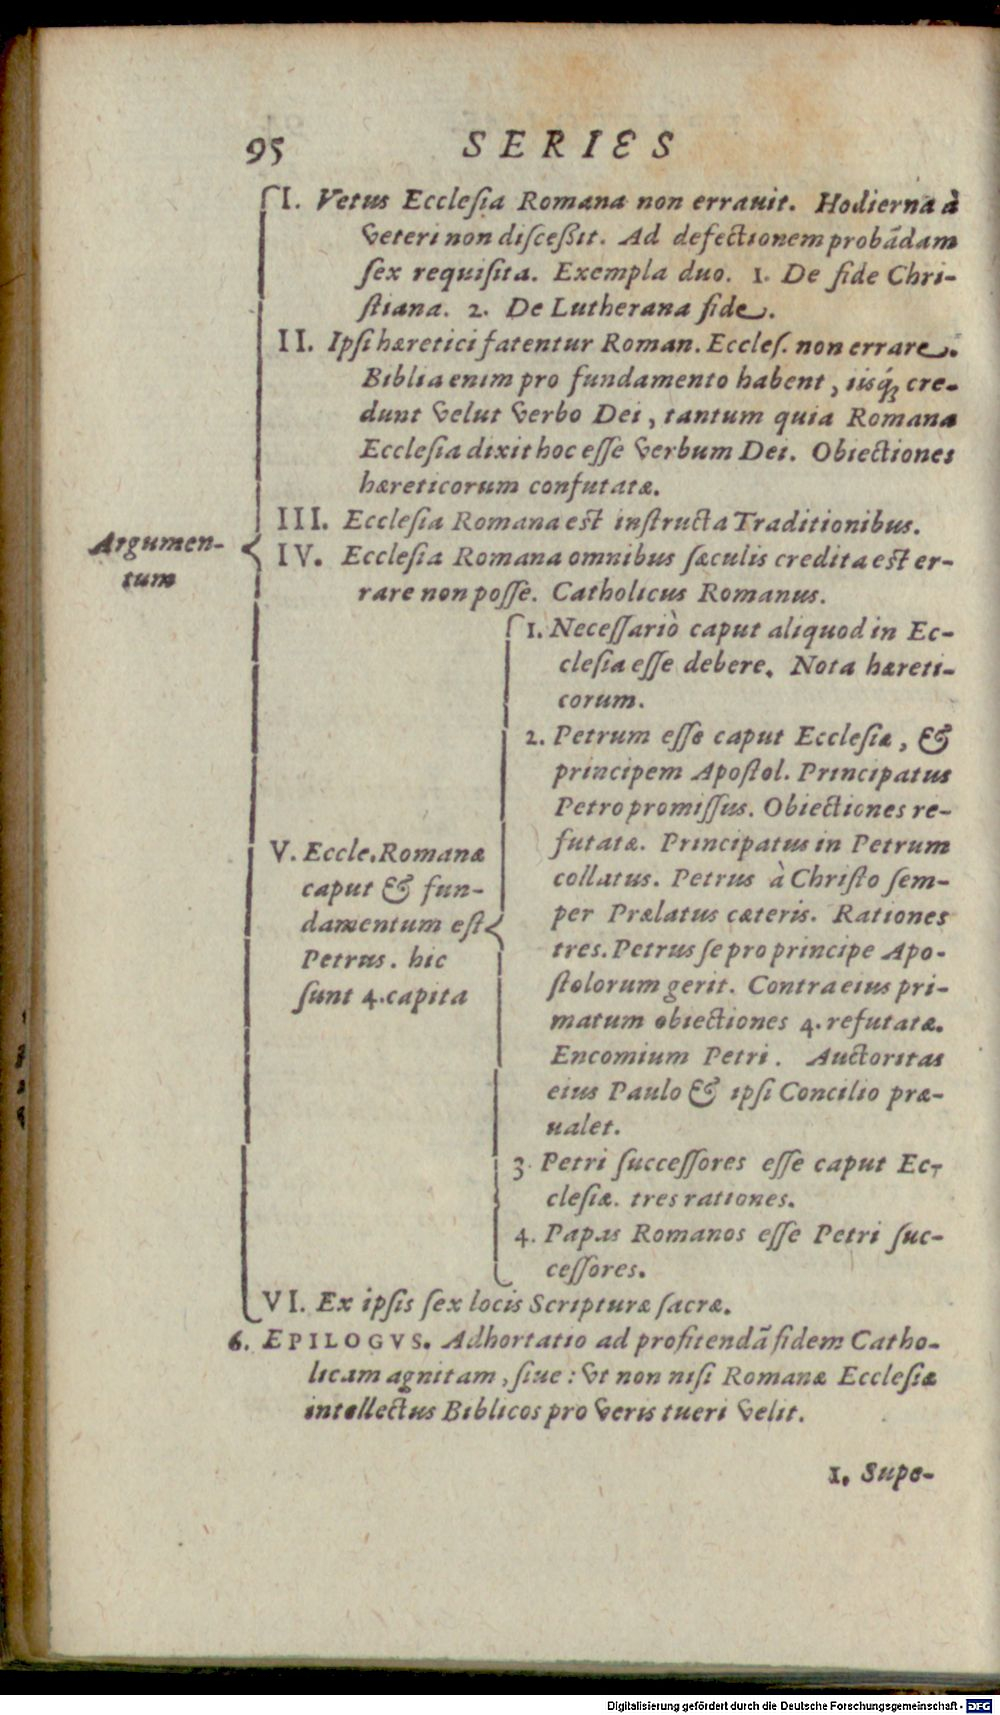 95 SERIES
I. Vetus Ecclesia Romana non errauit. Hodierna à
veteri non discessit. Ad defectionem probādam
sex requisita. Exempla duo. 1. De fide Chri-
stiana. 2. De Lutherana fide.
II. Ipsi hæretici fatentur Roman. Eccles. non errare.
Biblia enim pro fundamento habent, iisq́ꝫ cre-
dunt velut verbo Dei, tantum quia Romana
Ecclesia dixit hoc esse verbum Dei. Obiectiones
hæreticorum confutatæ.
III. Ecclesia Romana est instructa Traditionibus.
Argumen-
tum
IV. Ecclesia Romana omnibus sæculis credita est er-
rare non posse. Catholicus Romanus.
V. Eccle. Romanæ
caput & fun-
damentum est
Petrus. hic
sunt 4. capita
1. Necessariò caput aliquod in Ec-
clesia esse debere. Nota hæreti-
corum.
2. Petrum esse caput Ecclesiæ, &
principem Apostol. Principatus
Petro promissus. Obiectiones re-
futatæ. Principatus in Petrum
collatus. Petrus à Christo sem-
per Prælatus cæteris. Rationes
tres. Petrus se pro principe Apo-
stolorum gerit. Contra eius pri-
matum obiectiones 4. refutatæ.
Encomium Petri. Auctoritas
eius Paulo & ipsi Concilio præ-
ualet.
3. Petri successores esse caput Ec-
clesiæ. tres rationes.
4. Papas Romanos esse Petri suc-
cessores.
VI. Ex ipsis sex locis Scripturæ sacræ.
6. EPILOGVS. Adhortatio ad profitendā fidem Catho-
licam agnitam, siue: vt non nisi Romanæ Ecclesiæ
intellectus Biblicos pro veris tueri velit.
1. Supe-
Digitalisierung gefördert durch die Deutsche Forschungsgemeinschaft - DFG